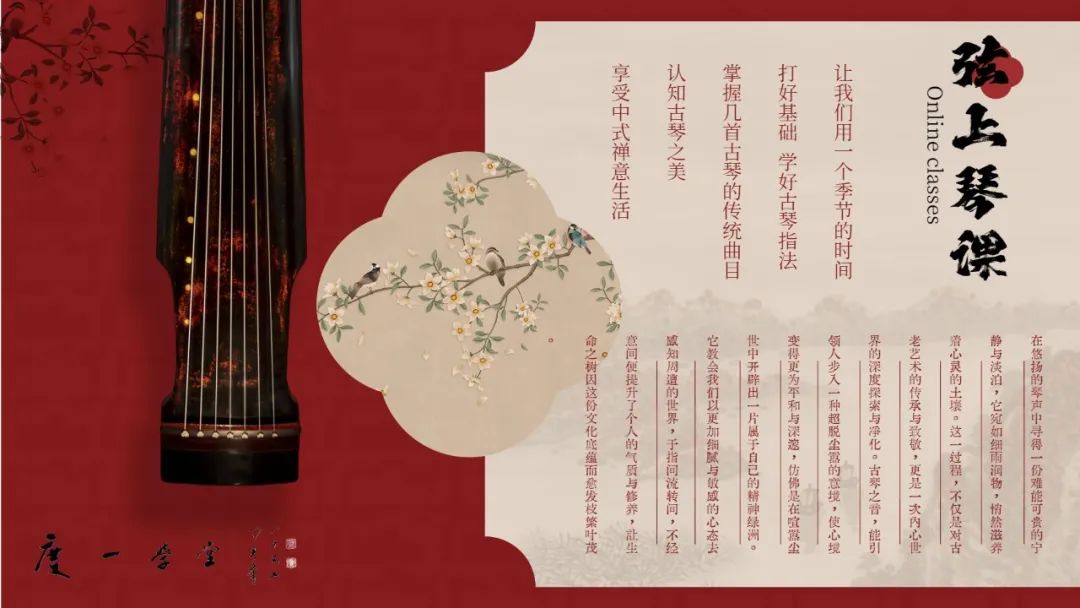 弦上琴课
Online classes
让我们用一个季节的时间
打好基础 学好古琴指法
掌握几首古琴的传统曲目
认知古琴之美
享受中式禅意生活
在悠扬的琴声中寻得一份难能可贵的宁
静与淡泊，它宛如细雨润物，悄然滋养
着心灵的土壤。这一过程，不仅是对古
老艺术的传承与致敬，更是一次内心世
界的深度探索与净化。古琴之音，能引
领人步入一种超脱尘嚣的意境，使心境
变得更为平和与深邃，仿佛是在喧嚣尘
世中开辟出一片属于自己的精神绿洲。
它教会我们以更加细腻与敏感的心态去
感知周遭的世界，于指间流转间，不经
意间便提升了个人的气质与修养，让生
命之树因这份文化底蕴而愈发枝繁叶茂
度一學堂